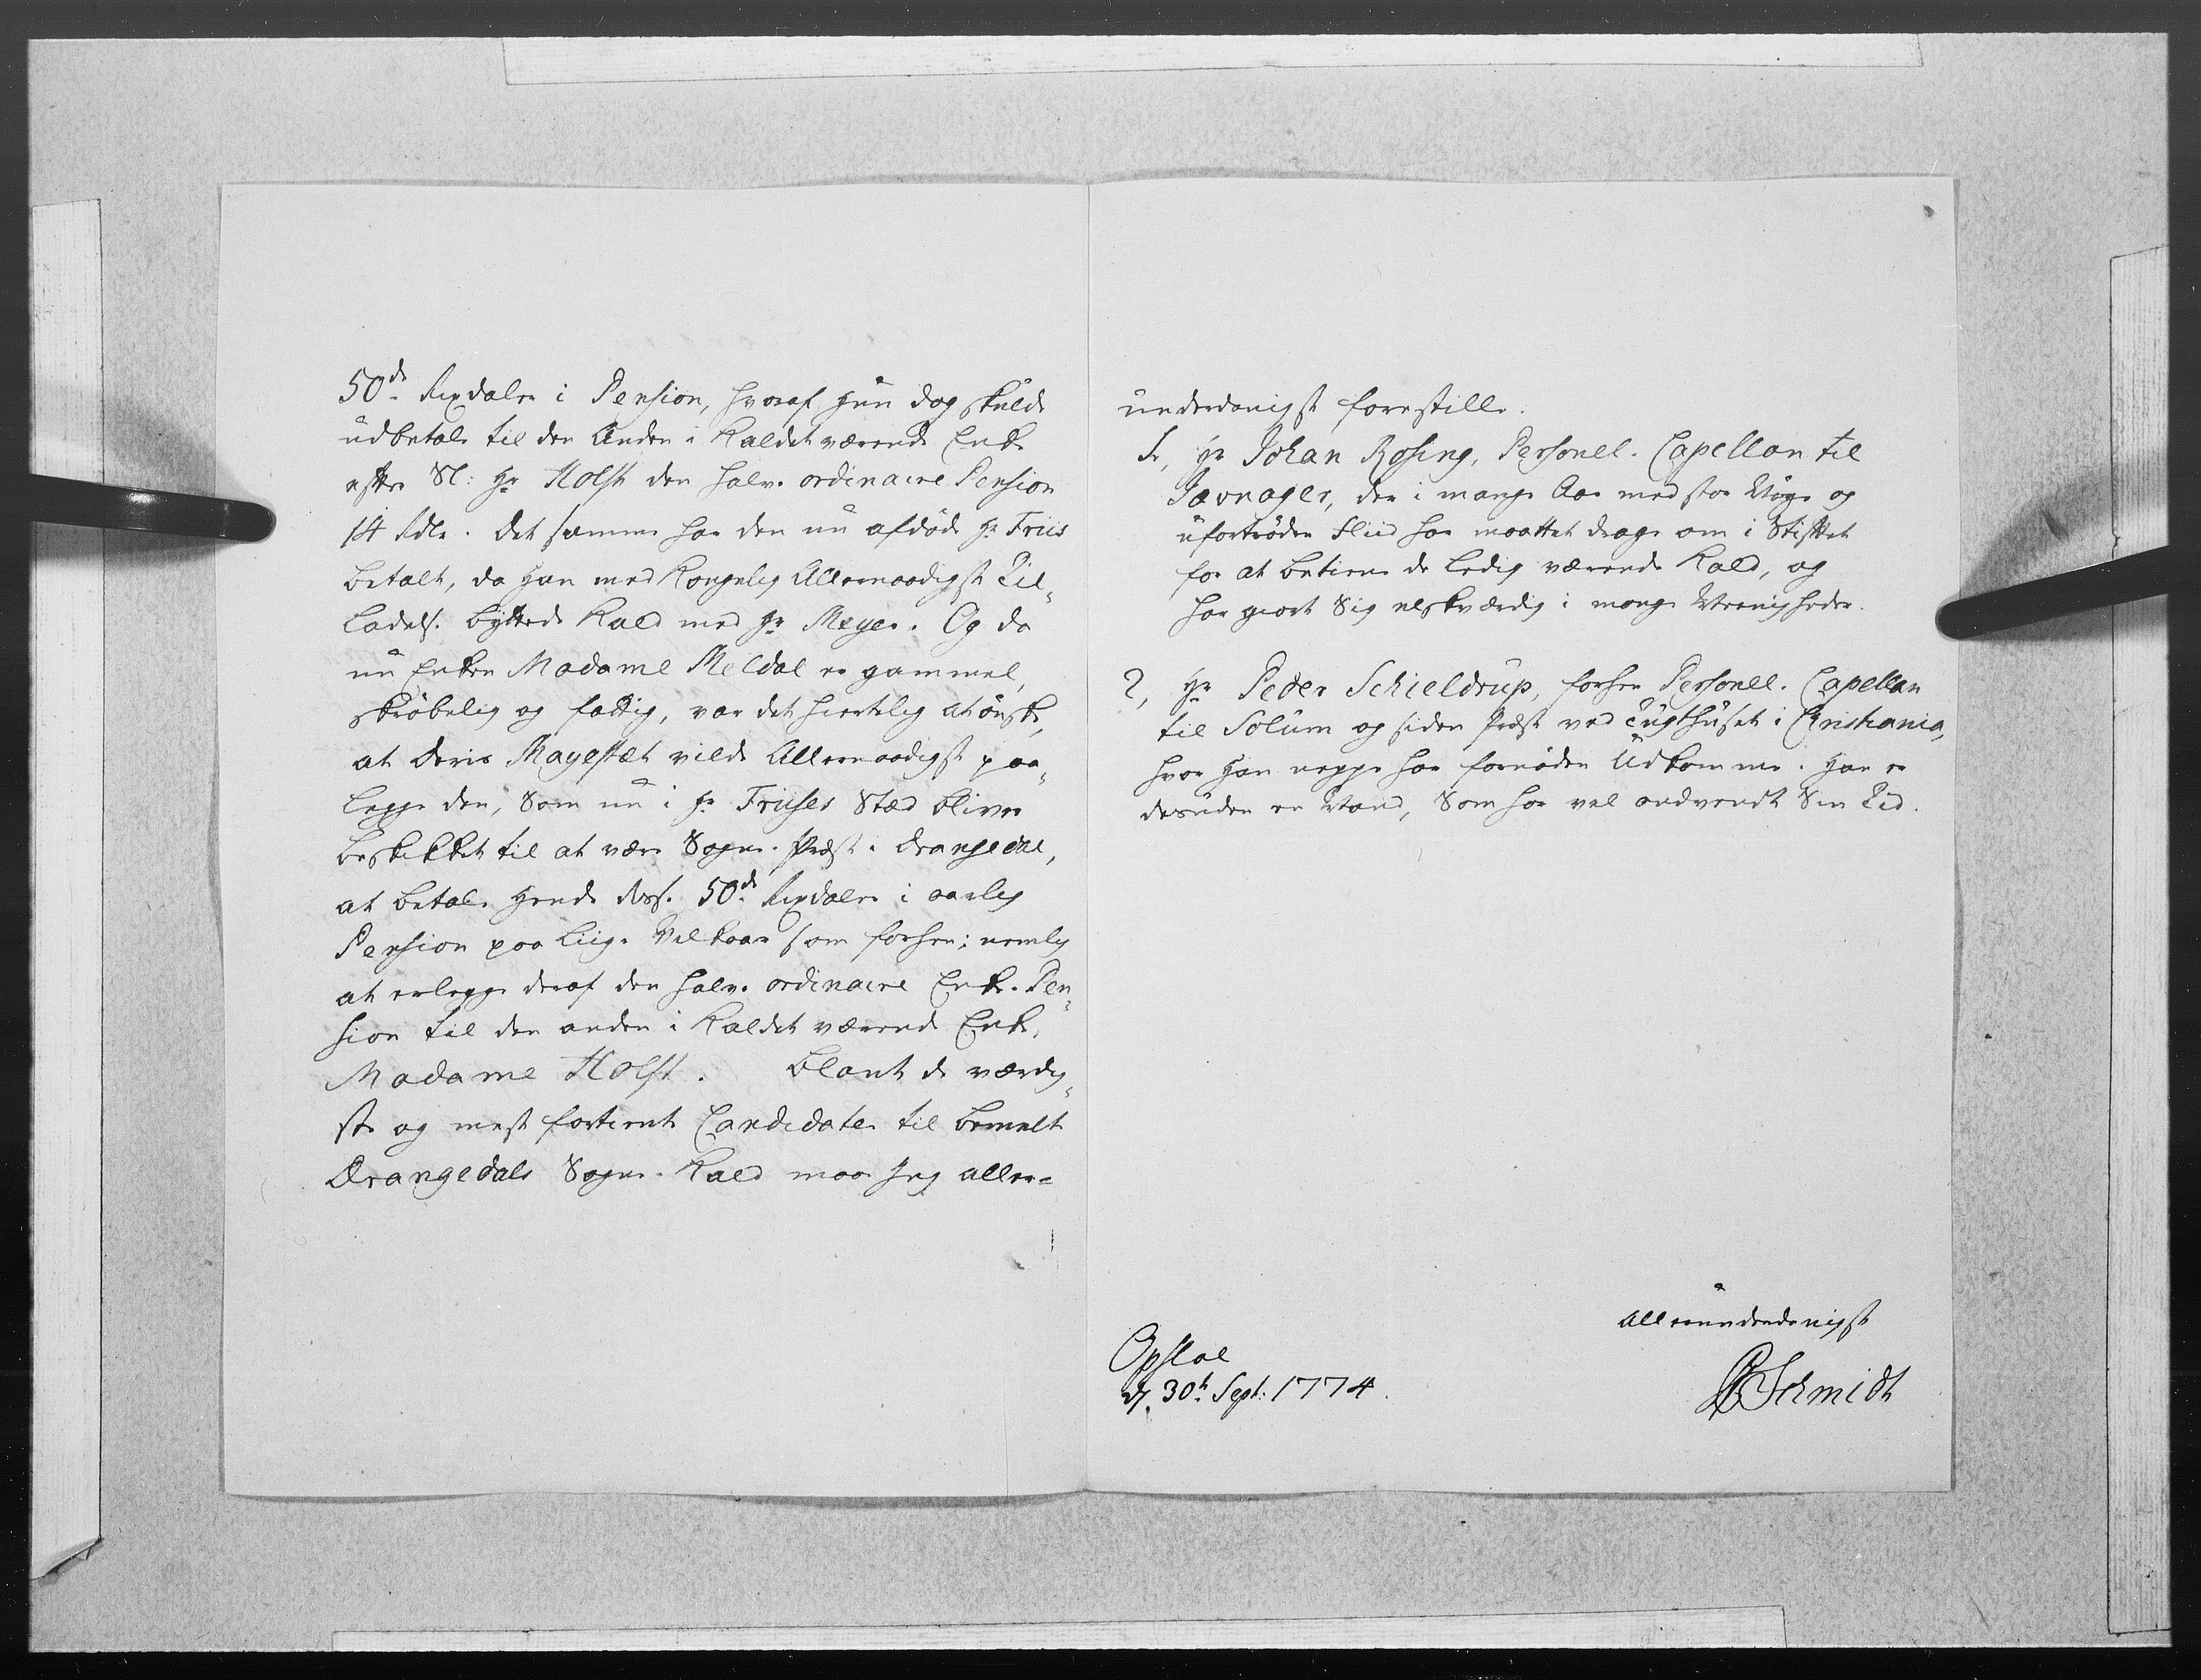 50de Rixdaler i Pension, hvoraf hun dog skulde
udbetale til den Anden i Kaldet værende Enke
efter Sl: Hr Holst den halve ordinaire Pension
14 Rdlr. Det samme har den nu afdöde Hr Friis
betalt, da Han med Kongelig Allernaadigst Til„
ladelse byttede Kald med Hr Meyer. Og da
nu Enken Madame Meldal er gammel,
skröbelig og fattig, var det hiertelig at önske,
at Deris Mayestæt vilde Allernaadigst paa„
legge den, Som nu i Hr Friises Stæd bliver
beskikket til at være Sogne-Præst i Drangedal,
at betale Hende disse 50de Rixdaler i aarlig
Pension paa liige Vilkaar som forhen; nemlig
at erlegge deraf den halve ordinaire Enke-Pen„
sion til den anden i Kaldet værende Enke,
Madame Holst. Blant de værdig„
ste og mest fortiente Candidater til bemelte
Drangedals Sogne-Kald maa Jeg aller-
underdanigst forestille.
1, Hr Johan Rosing, Personel-Capellan til
Jævnager, der i mange Aar med stor Möye og
ufortröden Fliid har maattet drage om i Stiftet
for at betiene de ledig værende Kald, og
har giort Sig elskværdig i mange Meenigheder.
2, Hr Peder Schieldrup, forhen Personel-Capellan
til Solum og siden Præst ved Tugthuset i Christiania,
hvor Han neppe har fornöden Udkomme. Han er
desuden en Mand, Som har vel andvendt Sin Tid.
Allerunderdanigst
Opsloe
d. 30te Sept: 1774.
Schmidt